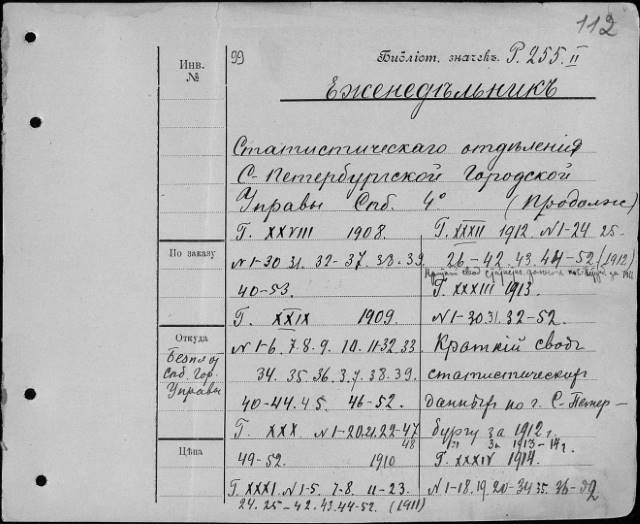 112
99
Библіот. значекъ P. 255. II
Инв. №
Еженедѣльникъ
Статистическаго отдѣленія
С-Петербургской Городской
Управы Спб. 4° (Продолж
Г. XXVIII 1908.
По заказу
N 1-30 31. 32-37. 38. 39
40-53.
Г. XXIX 1909.
Откуда
Безпл от
Спб. Гор.
Управы
N 1-6. 7. 8. 9. 10. 11-32. 33
34. 35. 36. 37. 38. 39.
40-44. 45. 46-52.
Г. XXX N 1-20. 21. 22-47
48
Цѣна
49-52. 1910
Г. XXXI. N 1-5. 7-8. 11-23.
24. 25-42. 43. 44-52. (1911)
Г. XXXII 1912. N 1-24. 25-
26-42. 43. 44-52 (1912)
Краткій свод данныхъ за 1911
Г. XXXIII 1913.
N 1-30 31. 32-52.
Краткій сводъ
статистическихъ
данныхъ по г. С-Петер-
бургу за 1912 г.
" за 1913-14 г.
Г. XXXIV 1914.
N 1-18. 19. 20-34 35. 36-52